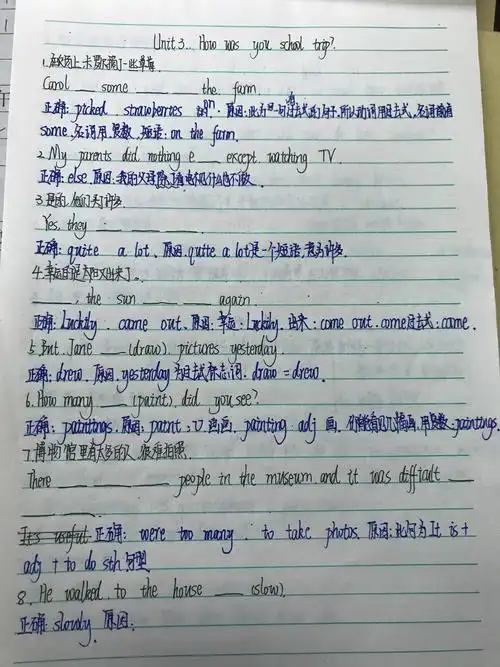 Unit.3... How was you school trip?
1.在农场上卡罗尔摘了一些草莓.
Carol ___ some ______ ___ the farm.
正确: picked strawberries on. 原因:此为一句过去式的句子,所以动词用过去式,名词前有
some,名词用复数. 短语: on the farm.
2.My parents did nothing e___ except watching TV.
正确: else. 原因:我的父母除了看电视什么也不做.
3.是的,他们买了许多.
Yes, they : ___ ___ ___.
正确: quite a lot. 原因: quite a lot是一个短语,意为许多.
4.幸运的是太阳又出来了。
___, the sun ___ ___ again.
正确: Luckily. came out. 原因:幸运: Luckily. 出来: come out. come过去式: came.
5.But Jane ___ (draw) pictures yesterday.
正确: drew. 原因: yesterday为过去式标志词. draw = drew.
6.How many ___ (paint) did you see?
正确: paintings. 原因: paint: v 画画. painting adj 画. 你能看见几幅画,用复数: paintings.
7.博物馆里有太多的人 很难拍照.
There ___ ___ ___ people in the museum and it was difficult ___
___ ___.
It's useful 正确: were too many . to take photos. 原因:此句为It is +
adj + to do sth 句型
8. He walked to the house ___ (slow).
正确: slowly. 原因: